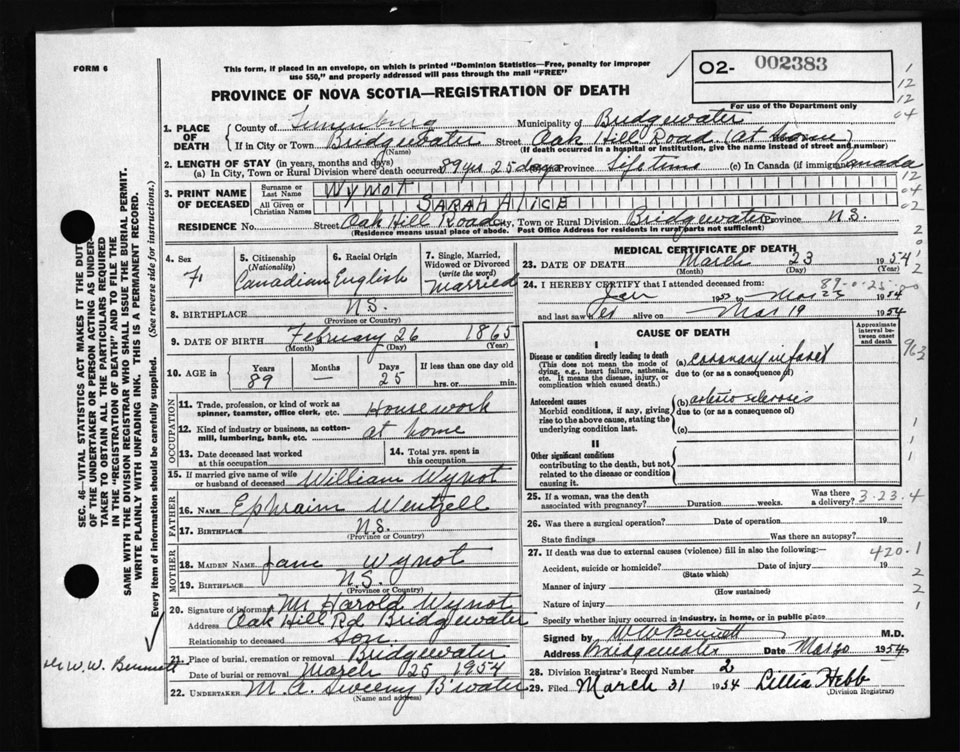 FORM 6
This form, if placed in an envelope, on which is printed "Dominion Statistics—Free, penalty for improper
use $50," and properly addressed will pass through the mail "FREE"
PROVINCE OF NOVA SCOTIA—REGISTRATION OF DEATH
O2- 002383
For use of the Department only
1. PLACE OF DEATH
County of Lunenburg Municipality of Bridgewater
If in City or Town Bridgewater Street Oak Hill Road (at home)
(Name) (If death occurred in a hospital or institution, give the name instead of street and number)
2. LENGTH OF STAY (in years, months and days)
(a) In City, Town or Rural Division where death occurred 89 yrs 25 days Province Life time (c) In Canada (if immigrant) Canada
3. PRINT NAME OF DECEASED
Surname or Last Name Wynot
All Given or Christian Names SARAH AlICE
RESIDENCE No. Street Oak Hill Road City, Town or Rural Division Bridgewater Province N.S.
(Residence means usual place of abode. Post Office Address for residents in rural parts not sufficient)
4. Sex F
5. Citizenship (Nationality) Canadian
6. Racial Origin English
7. Single, Married, Widowed or Divorced (write the word) Married
8. BIRTHPLACE N.S.
(Province or Country)
9. DATE OF BIRTH February 26 1865
(Month) (Day) (Year)
10. AGE in Years 89 Months — Days 25 If less than one day old
hrs. or min.
OCCUPATION
11. Trade, profession, or kind of work as
spinner, teamster, office clerk, etc. House work
12. Kind of industry or business, as cotton-
mill, lumbering, bank, etc. at home
13. Date deceased last worked
at this occupation
14. Total yrs. spent in
this occupation
15. If married give name of wife
or husband of deceased William Wynot
FATHER
16. NAME Ephraim Wentzell
17. BIRTHPLACE N.S.
(Province or Country)
MOTHER
18. MAIDEN NAME Jane Wynot
19. BIRTHPLACE N.S.
(Province or Country)
20. Signature of informant Mr Harold Wynot
Address Oak Hill Rd Bridgewater
Relationship to deceased Son
21. Place of burial, cremation or removal Bridgewater
Date of burial or removal March 25 1954
22. UNDERTAKER M. A. Sweeny B'water
(Name and address)
MEDICAL CERTIFICATE OF DEATH
23. DATE OF DEATH March 23 1954
(Month) (Day) (Year)
24. I HEREBY CERTIFY that I attended deceased from: 89-0-25
Jan 1953 to Mar 23 1954
and last saw her alive on Mar 19 1954
CAUSE OF DEATH
Approximate interval between onset and death
I
Disease or condition directly leading to death
(This does not mean the mode of
dying, e.g., heart failure, asthenia,
etc. It means the disease, injury, or
complication which caused death.)
(a) coronary infarct
due to (or as a consequence of)
Antecedent causes
Morbid conditions, if any, giving
rise to the above cause, stating the
underlying condition last.
(b) arteriosclerosis
due to (or as a consequence of)
(c)
II
Other significant conditions
contributing to the death, but not
related to the disease or condition
causing it.
963
25. If a woman, was the death
associated with pregnancy? Duration weeks. Was there
a delivery? 3.23.4
26. Was there a surgical operation? Date of operation 19
State findings Was there an autopsy?
27. If death was due to external causes (violence) fill in also the following:— 420.1
Accident, suicide or homicide? Date of injury 19
(State which)
Manner of injury
(How sustained)
Nature of injury
Specify whether injury occurred in industry, in home, or in public place
Signed by W W Bennett M.D.
Address Bridgewater Date Mar 30 1954
28. Division Registrar's Record Number 2
29. Filed March 31 1954 Lillia Hebb
(Division Registrar)
SEC. 46—VITAL STATISTICS ACT MAKES IT THE DUTY
OF THE UNDERTAKER OR PERSON ACTING AS UNDER-
TAKER TO OBTAIN ALL THE PARTICULARS REQUIRED
IN THE "REGISTRATION OF DEATH" AND TO FILE THE
SAME WITH THE DIVISION REGISTRAR WHO SHALL ISSUE THE BURIAL PERMIT.
WRITE PLAINLY WITH UNFADING INK. THIS IS A PERMANENT RECORD.
Every item of information should be carefully supplied. (See reverse side for instructions.)
Dr W. W. Bennett